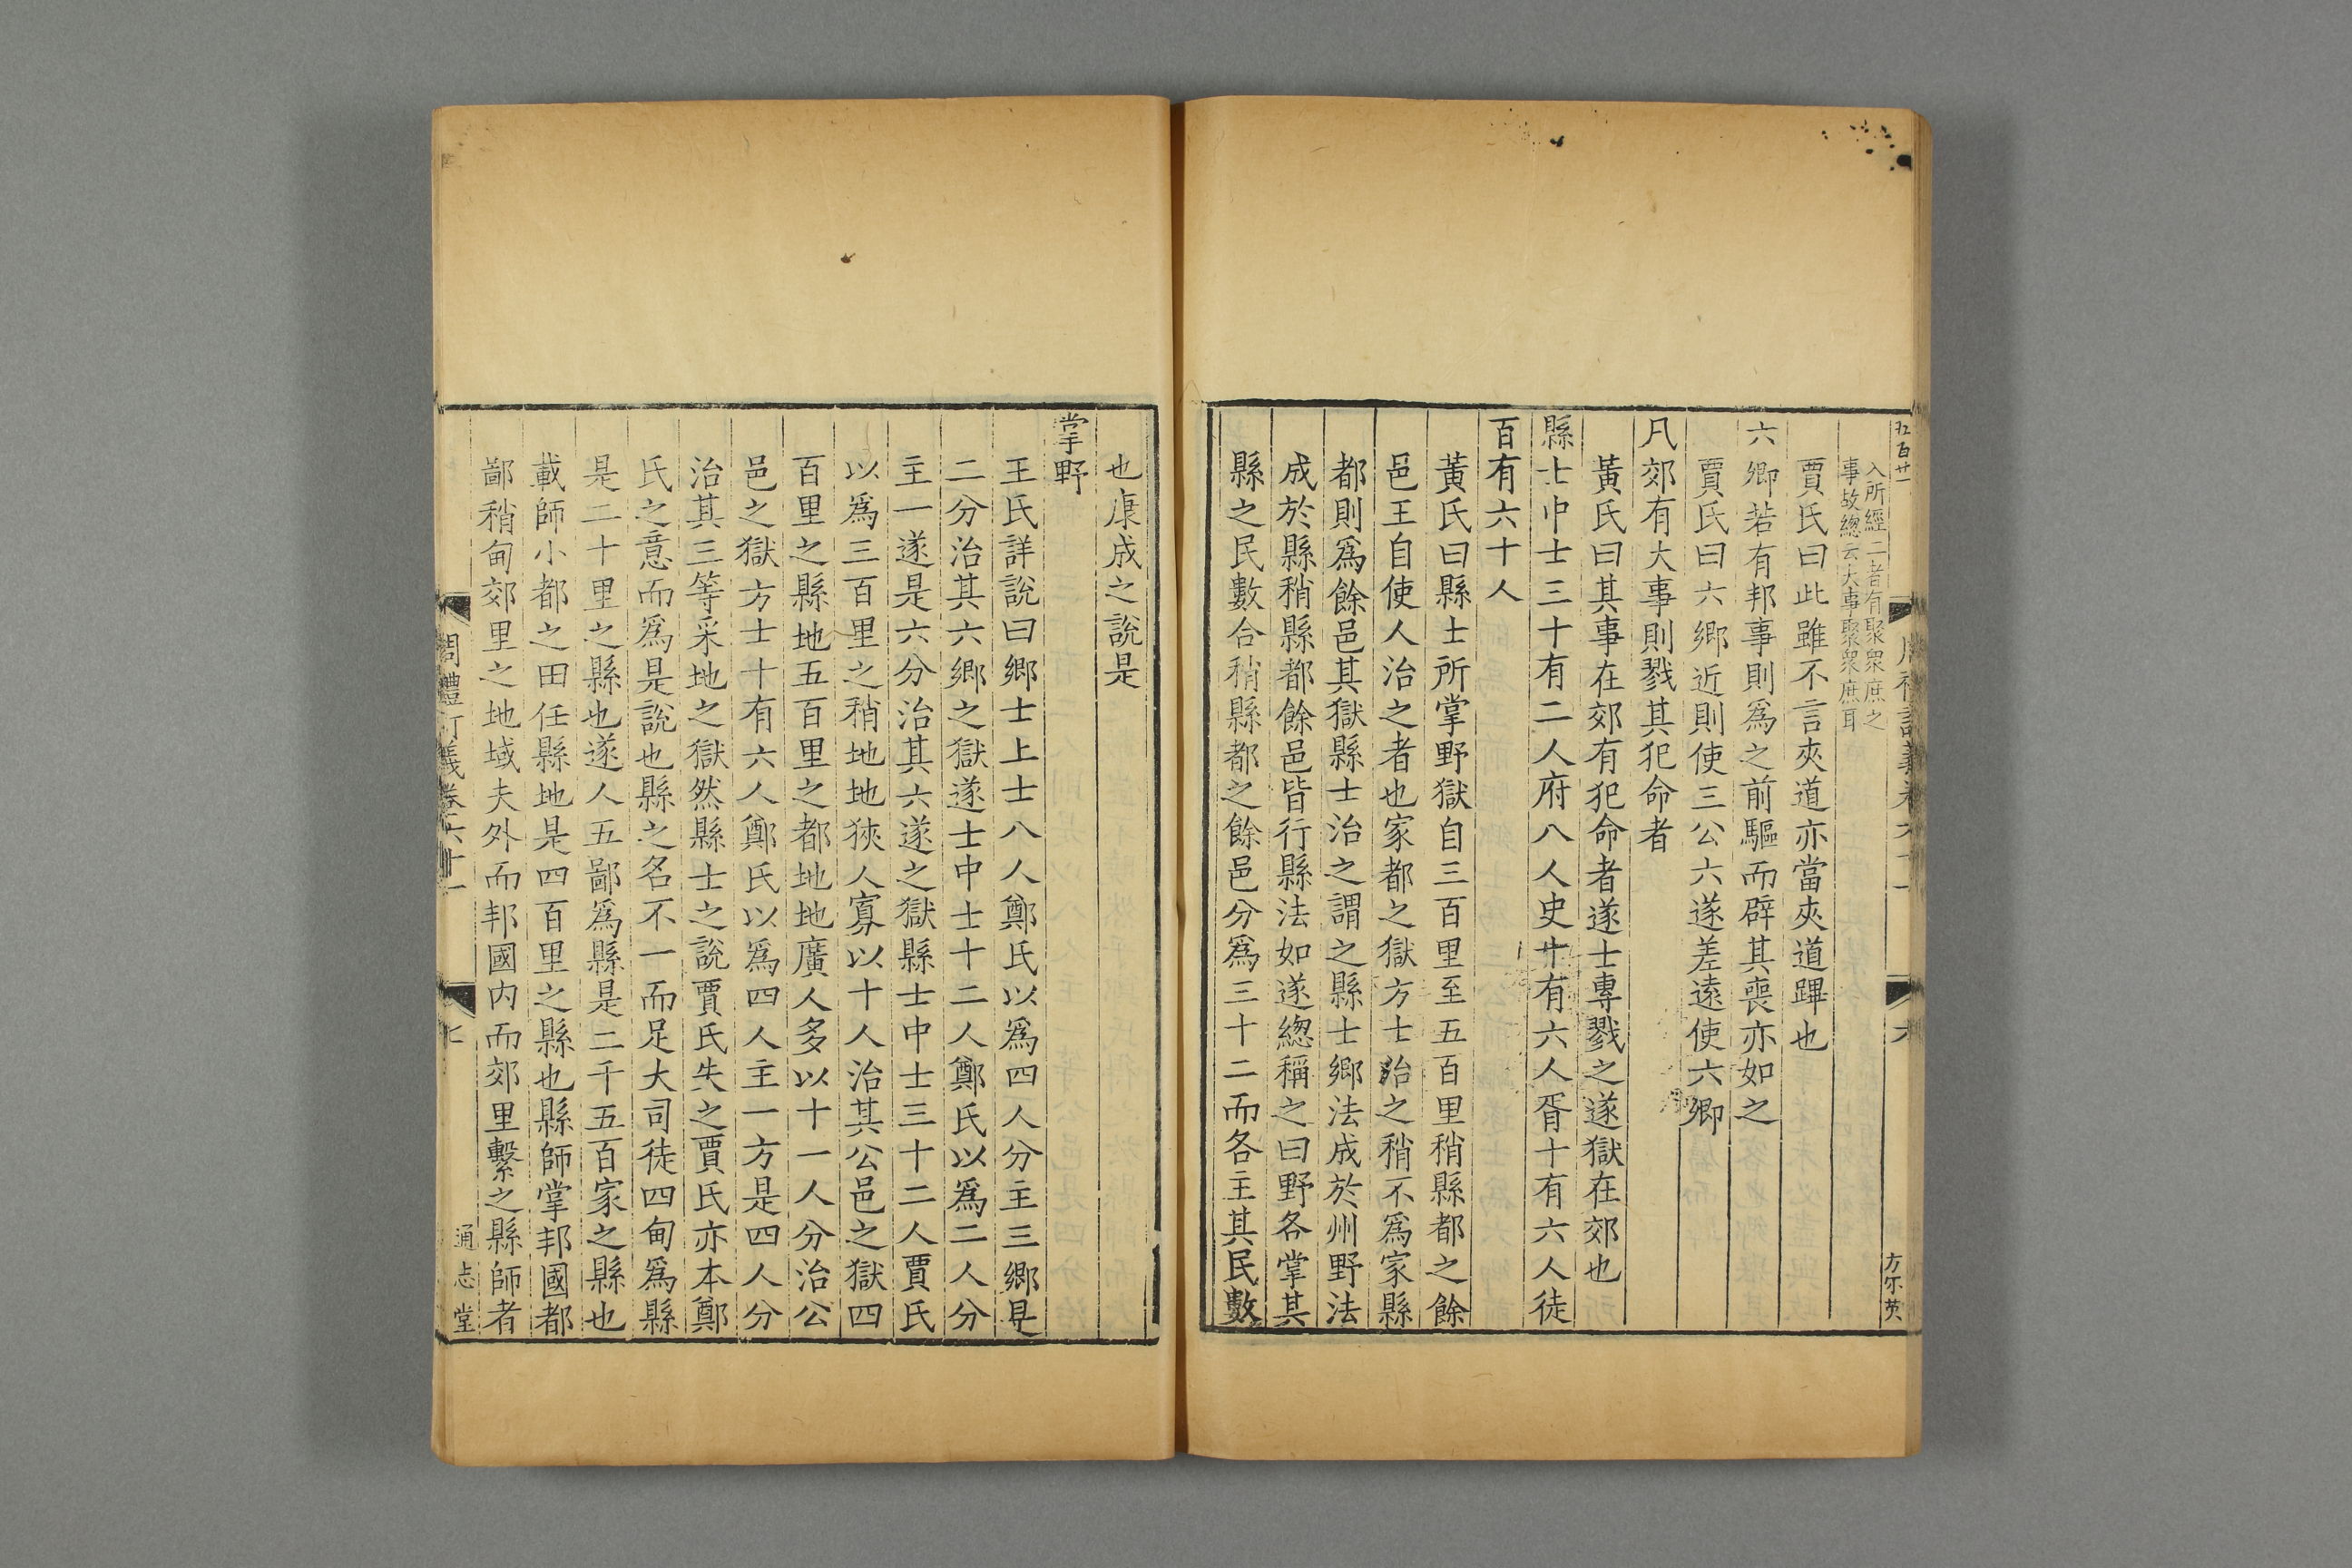 入所經二者有聚衆庶之
事故總云大事聚衆庶耳
賈氏曰此雖不言夾道亦當夾道蹕也
六卿若有邦事則爲之前驅而辟其喪亦如之
賈氏曰六鄉近則使三公六遂差遠使六卿
凡郊有大事則戮其犯命者
黃氏曰其事在郊有犯命者遂士專戮之遂獄在郊也
縣士中士三十有二人府八人史十有六人胥十有六人徒
百有六十人
黃氏曰縣士所掌野獄自三百里至五百里稍縣都之餘
邑王自使人治之者也家都之獄方士治之稍不爲家縣
都則爲餘邑其獄縣士治之謂之縣士鄉法成於州野法
成於縣稍縣都餘邑皆行縣法如遂緫稱之曰野各掌其
縣之民數合稍縣都之餘邑分爲三十二而各主其民數
也康成之說是
掌野
王氏詳說曰鄉士上士八人鄭氏以爲四人分主三鄉是
二分治其六鄉之獄遂士中士十二人鄭氏以爲二人分
主一遂是六分治其六遂之獄縣士中士三十二人賈氏
以爲三百里之稍地地狹人寡以十人治其公邑之獄四
百里之縣地五百里之都地地廣人多以十一人分治公
邑之獄方士十有六人鄭氏以爲四人主一方是四人分
治其三等采地之獄然縣士之說賈氏失之賈氏亦本鄭
氏之意而爲是說也縣之名不一而足大司徒四甸爲縣
是二十里之縣也遂人五鄙爲縣是二千五百家之縣也
載師小都之田任縣地是四百里之縣也縣師掌邦國都
鄙稍甸郊里之地域夫外而邦國内而郊里繫之縣師者
周禮訂義卷六十一
七
通志堂